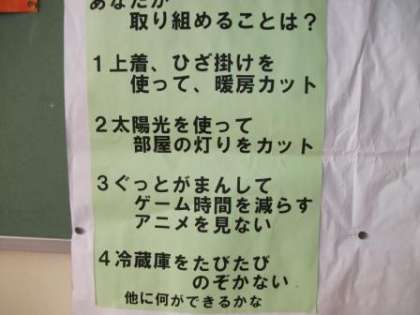 あなたが
取り組めることは?
1上着、ひざ掛けを
使って、暖房カット
2太陽光を使って
部屋の灯りをカット
3ぐっとがまんして
ゲーム時間を減らす
アニメを見ない
4冷蔵庫をたびたび
のぞかない
他に何ができるかな